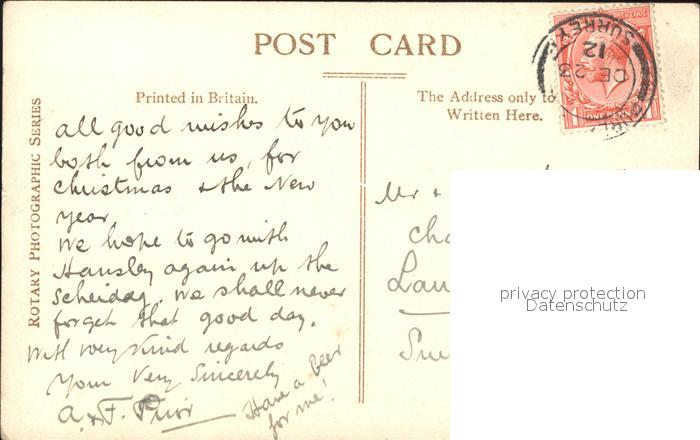 POST CARD
Printed in Britain.
The Address only to
Written Here.
ROTARY PHOTOGRAPHIC SERIES
all good wishes to you
both from us, for
Christmas & the New
year,
We hope to go with
Hansley again up the
Scheidag. We shall never
forget that good day.
With very kind regards
Your Very Sincerely
A. & F. Prior
Have a beer
for me!
Mr &
Lau
SURREY
DE 23
12
REVENUE
ONE PENNY
privacy protection
Datenschutz